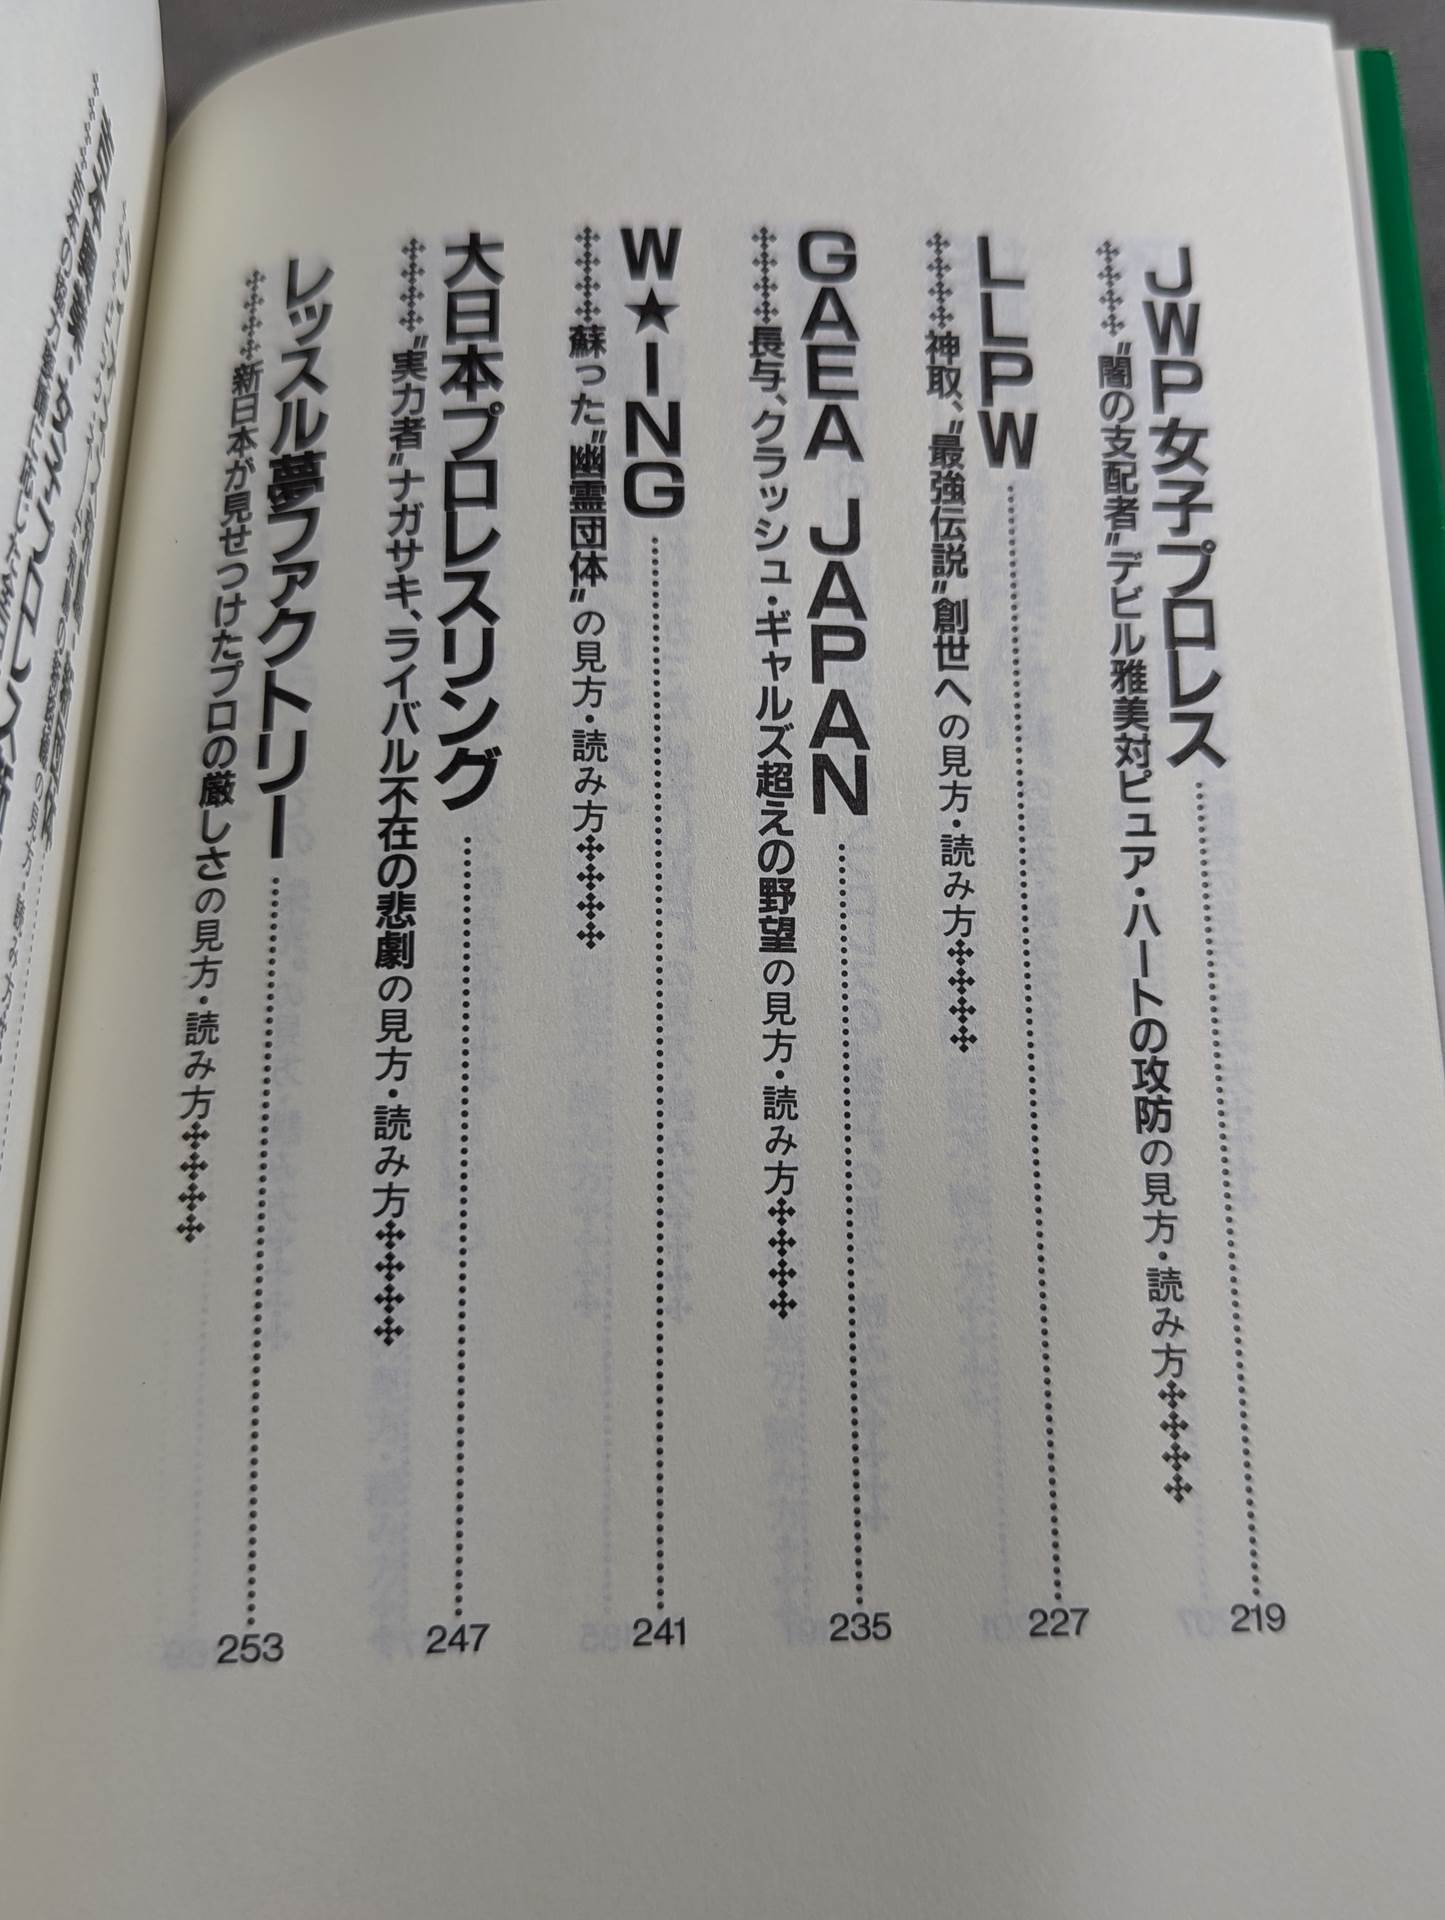 JWP女子プロレス……219
"闇の支配者"デビル雅美対ピュア・ハートの攻防の見方・読み方
LLPW……227
神取、"最強伝説"創世への見方・読み方
GAEA JAPAN……235
長与、クラッシュ・ギャルズ超えの野望の見方・読み方
W★ING……241
蘇った"幽霊団体"の見方・読み方
大日本プロレスリング……247
"実力者"ナガサキ、ライバル不在の悲劇の見方・読み方
レッスル夢ファクトリー……253
新日本が見せつけたプロの厳しさの見方・読み方